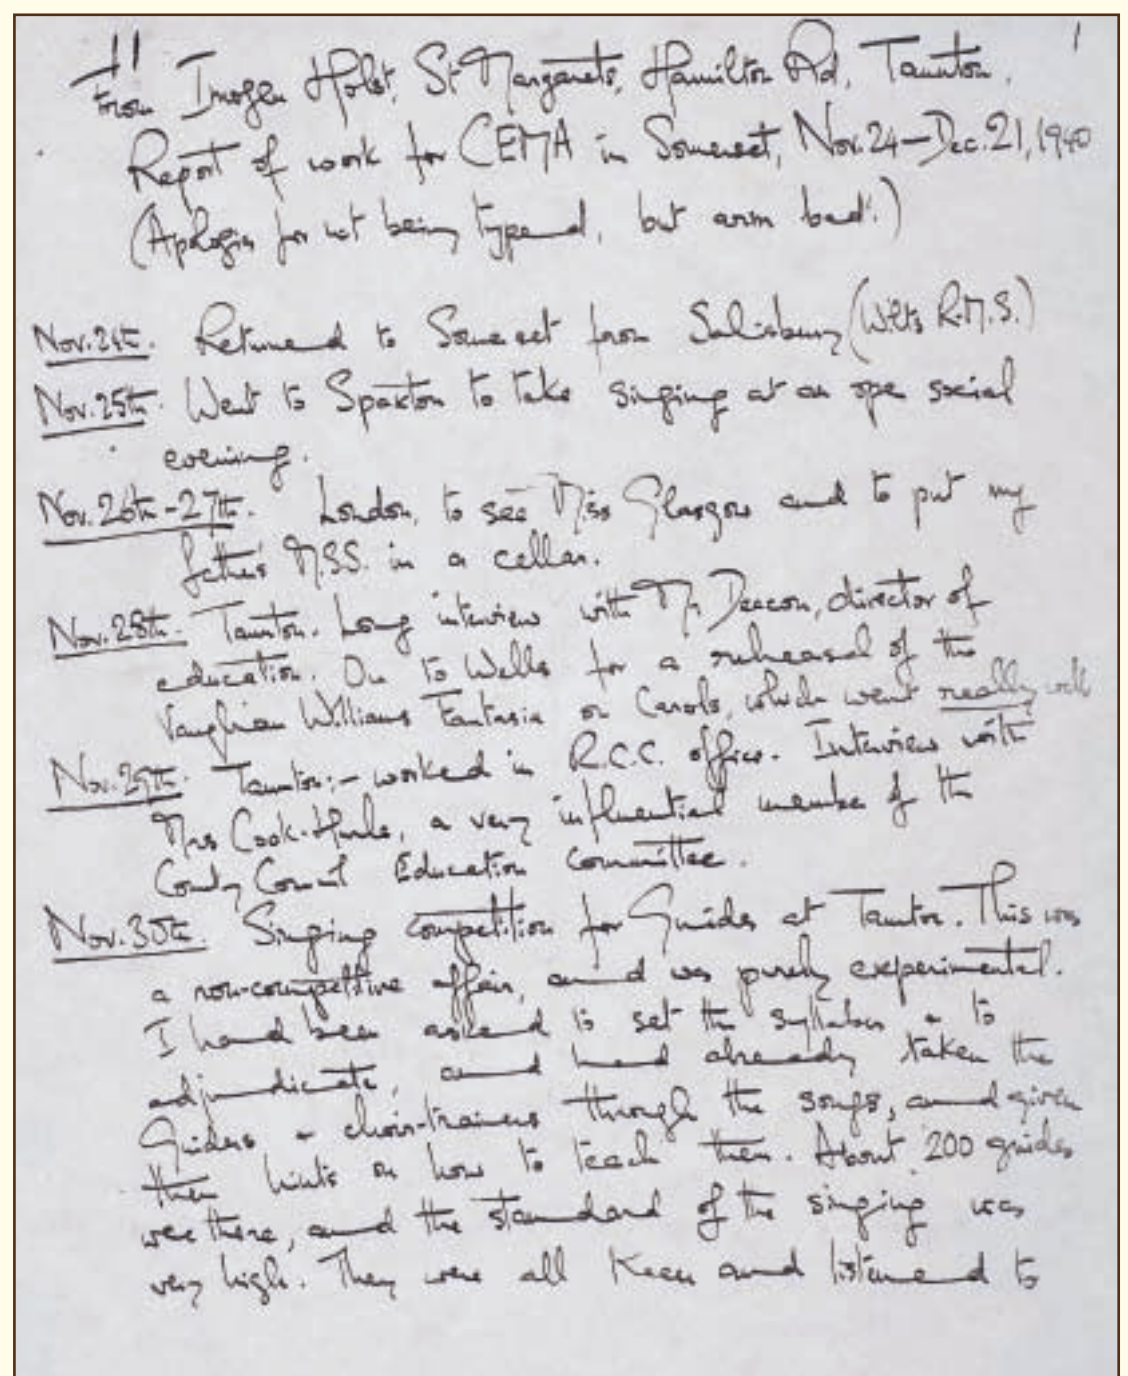 11 1
From Imogen Holst, St Margarets, Hamilton Rd, Taunton.
Report of work for CEMA in Somerset, Nov. 24–Dec. 21, 1940
(Apologies for not being typed, but arm bad.)
Nov. 24th. Returned to Somerset from Salisbury (Wilts R.M.S.)
Nov. 25th. Went to Spaxton to take singing at an open social
evening.
Nov. 26th–27th. London, to see Miss Glasgow and to put my
father's M.SS. in a cellar.
Nov. 28th. Taunton. Long interview with Mr Deacon, director of
education. On to Wells for a rehearsal of the
Vaughan Williams Fantasia on Carols, which went really well
Nov. 29th. Taunton:– worked in R.C.C. office. Interview with
Mrs Cook-Hurle, a very influential member of the
County Council Education Committee.
Nov. 30th. Singing competition for Guides at Taunton. This was
a non-competitive affair, and was purely experimental.
I had been asked to set the syllabus & to
adjudicate, and had already taken the
Guiders & choir-trainers through the songs, and given
them hints on how to teach them. About 200 guides
were there, and the standard of the singing was
very high. They were all keen and listened to